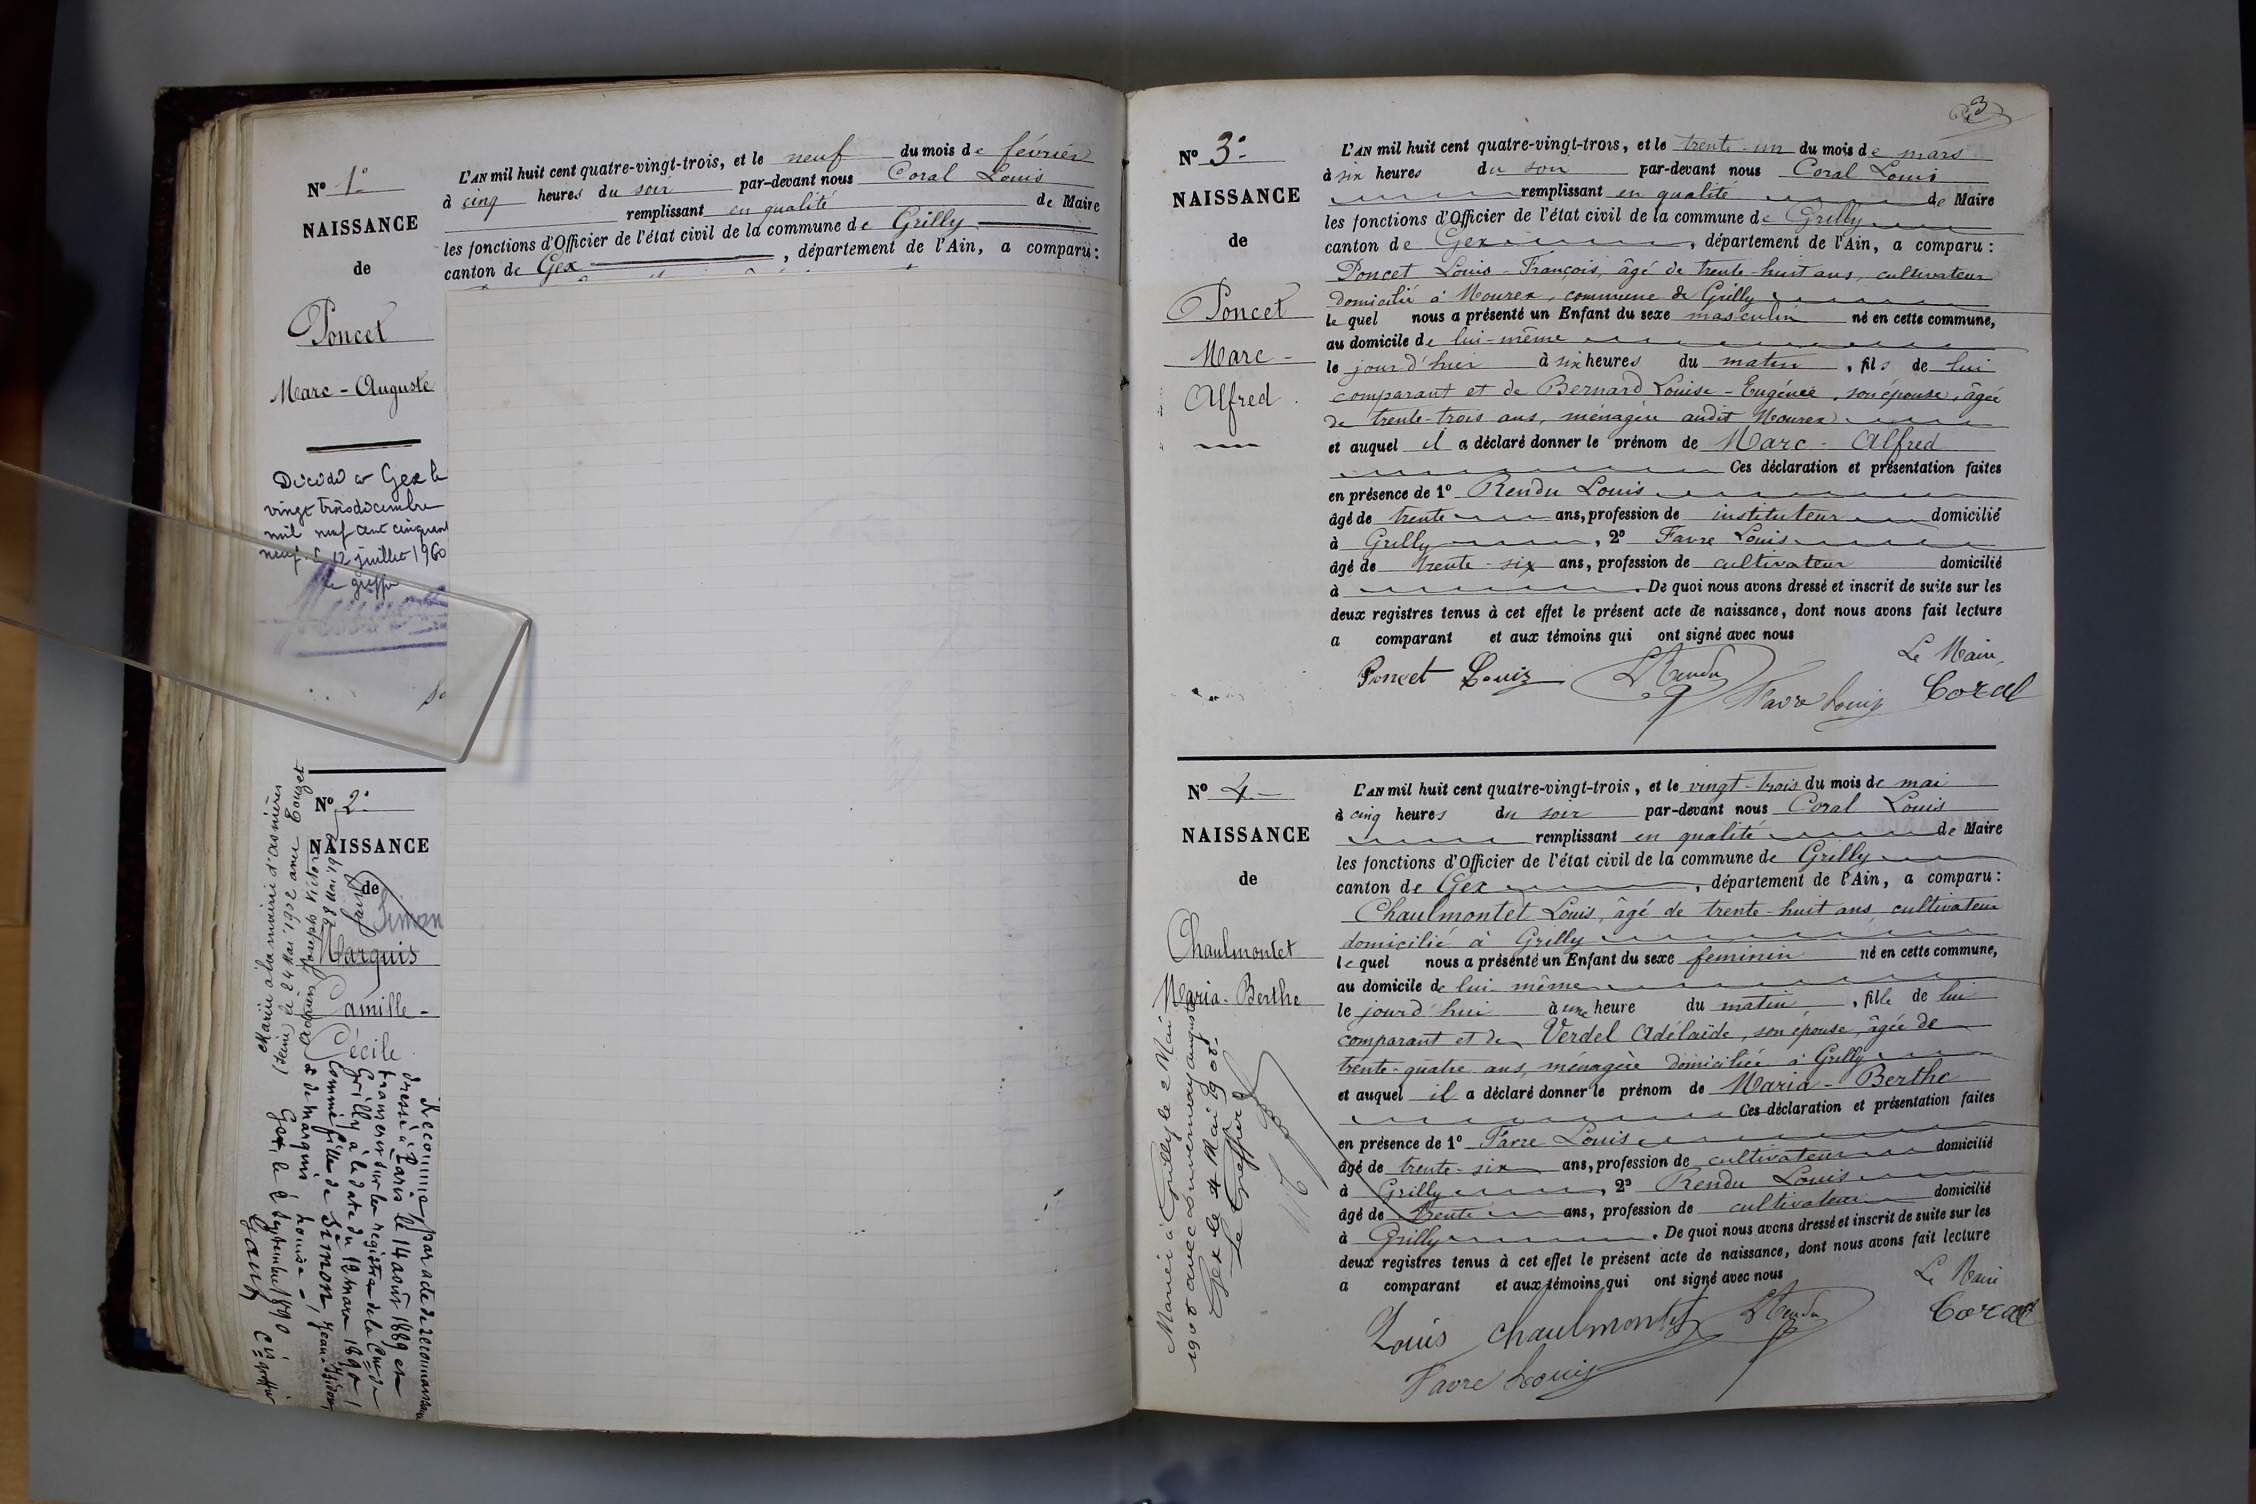 Nº 1º
NAISSANCE
de
Poncet
Marc - Auguste
Décédé à Gex le
vingt trois décembre
mil neuf cent cinquante
neuf. Le 12 juillet 1960
Le greffier
L'AN mil huit cent quatre-vingt-trois, et le neuf du mois de février
à cinq heures du soir par-devant nous Coral Louis
remplissant en qualité de Maire
les fonctions d'Officier de l'état civil de la commune de Grilly
canton de Gex, département de l'Ain, a comparu :
Nº 2º
NAISSANCE
de
Simon
Marquis
Camille -
Cécile
Mariée à la mairie d'Asnières
(Seine) le 24 Mai 1902 avec Touzet
Adrien Joseph Victor
28 Mai 1902
Reconnue par acte de reconnaissance
dressé à Paris le 14 août 1889 et
transcrit sur les registres de la Cne de
Grilly à la date du 12 mars 1890
Comme fille de Simon, Jean-Isidore
& de Marquis Louise -
Gex, le 2 Septembre 1890
3
Nº 3º
NAISSANCE
de
Poncet
Marc -
Alfred
L'AN mil huit cent quatre-vingt-trois, et le trente-un du mois de mars
à six heures du soir par-devant nous Coral Louis
remplissant en qualité de Maire
les fonctions d'Officier de l'état civil de la commune de Grilly
canton de Gex, département de l'Ain, a comparu :
Poncet Louis-François, âgé de trente-huit ans, cultivateur
domicilié à Mourex, commune de Grilly
lequel nous a présenté un Enfant du sexe masculin né en cette commune,
au domicile de lui-même
le jour d'hier à six heures du matin, fils de lui
comparant et de Bernard Louise-Eugénie, son épouse, âgée
de trente-trois ans, ménagère audit Mourex
et auquel il a déclaré donner le prénom de Marc - Alfred
Ces déclaration et présentation faites
en présence de 1º Rendu Louis
âgé de trente ans, profession de instituteur domicilié
à Grilly, 2º Favre Louis
âgé de trente-six ans, profession de cultivateur domicilié
à . De quoi nous avons dressé et inscrit de suite sur les
deux registres tenus à cet effet le présent acte de naissance, dont nous avons fait lecture
a comparant et aux témoins qui ont signé avec nous
Le Maire,
Poncet Louis LRendu Favre Louis Coral
Nº 4.-
NAISSANCE
de
Chaulmontet
Maria-Berthe
Mariée à Grilly le 2 Mai
1908 avec
Gex le 4 Mai 1908.
Le Greffier
L'AN mil huit cent quatre-vingt-trois, et le vingt-trois du mois de mai
à cinq heures du soir par-devant nous Coral Louis
remplissant en qualité de Maire
les fonctions d'Officier de l'état civil de la commune de Grilly
canton de Gex, département de l'Ain, a comparu :
Chaulmontet Louis, âgé de trente-huit ans, cultivateur
domicilié à Grilly
lequel nous a présenté un Enfant du sexe feminin né en cette commune,
au domicile de lui même
le jourd'hui à une heure du matin, fille de lui
comparant et de Verdel Adélaïde, son épouse, âgée de
trente-quatre ans, ménagère domiciliée à Grilly
et auquel il a déclaré donner le prénom de Maria - Berthe
Ces déclaration et présentation faites
en présence de 1º Favre Louis
âgé de trente-six ans, profession de cultivateur domicilié
à Grilly, 2º Rendu Louis
âgé de trente ans, profession de cultivateur domicilié
à Grilly. De quoi nous avons dressé et inscrit de suite sur les
deux registres tenus à cet effet le présent acte de naissance, dont nous avons fait lecture
a comparant et aux témoins qui ont signé avec nous
Le Maire
Louis Chaulmontet LRendu Coral
Favre Louis